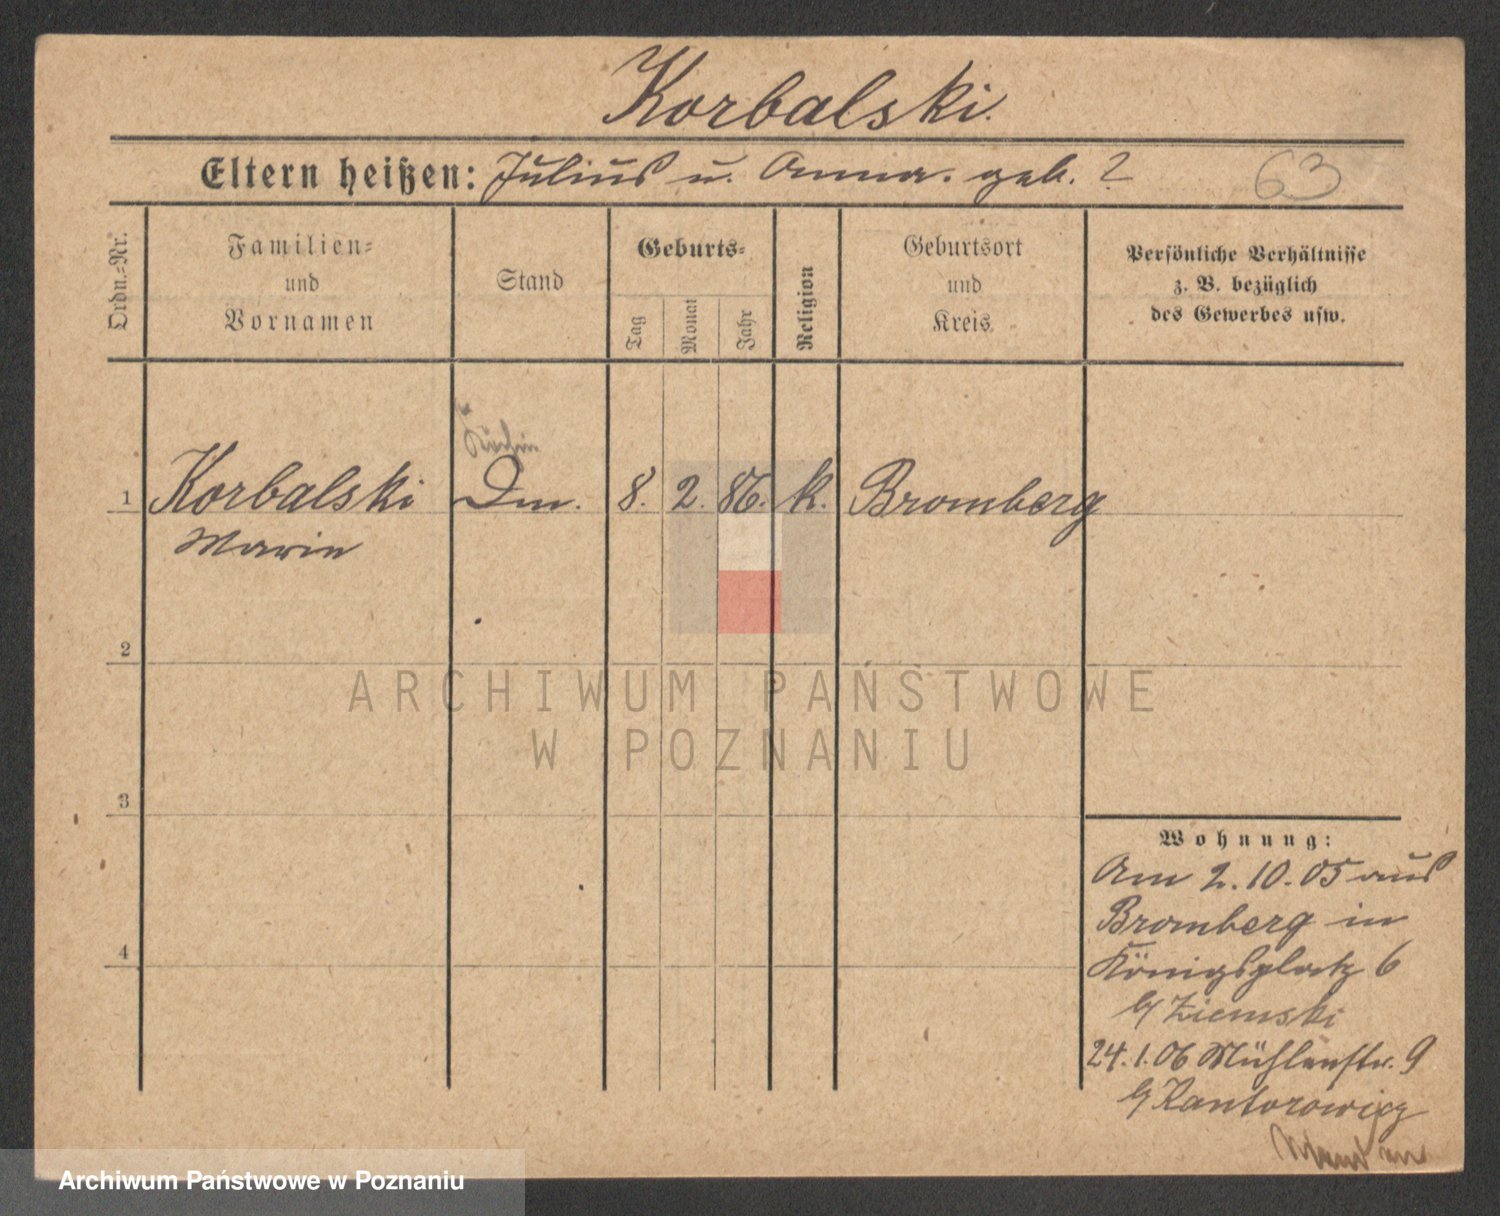 Korbalski.
Eltern heißen: Julius u. Anna. geb. ?
63
Ordn.=Nr.
Familien=
und
Vornamen
Stand
Geburts=
Tag
Monat
Jahr
Religion
Geburtsort
und
Kreis
Persönliche Verhältnisse
z. B. bezüglich
des Gewerbes usw.
Köchin
1 Korbalski Dm. 8. 2. 86. k. Bromberg
Marie
2
3
4
Wohnung:
Am 2.10.05 aus
Bromberg in
Königsplatz 6
b/ Ziemski
24.1.06 Mühlenstr. 9
b/ Kantorowicz
ARCHIWUM PAŃSTWOWE
W POZNANIU
Archiwum Państwowe w Poznaniu